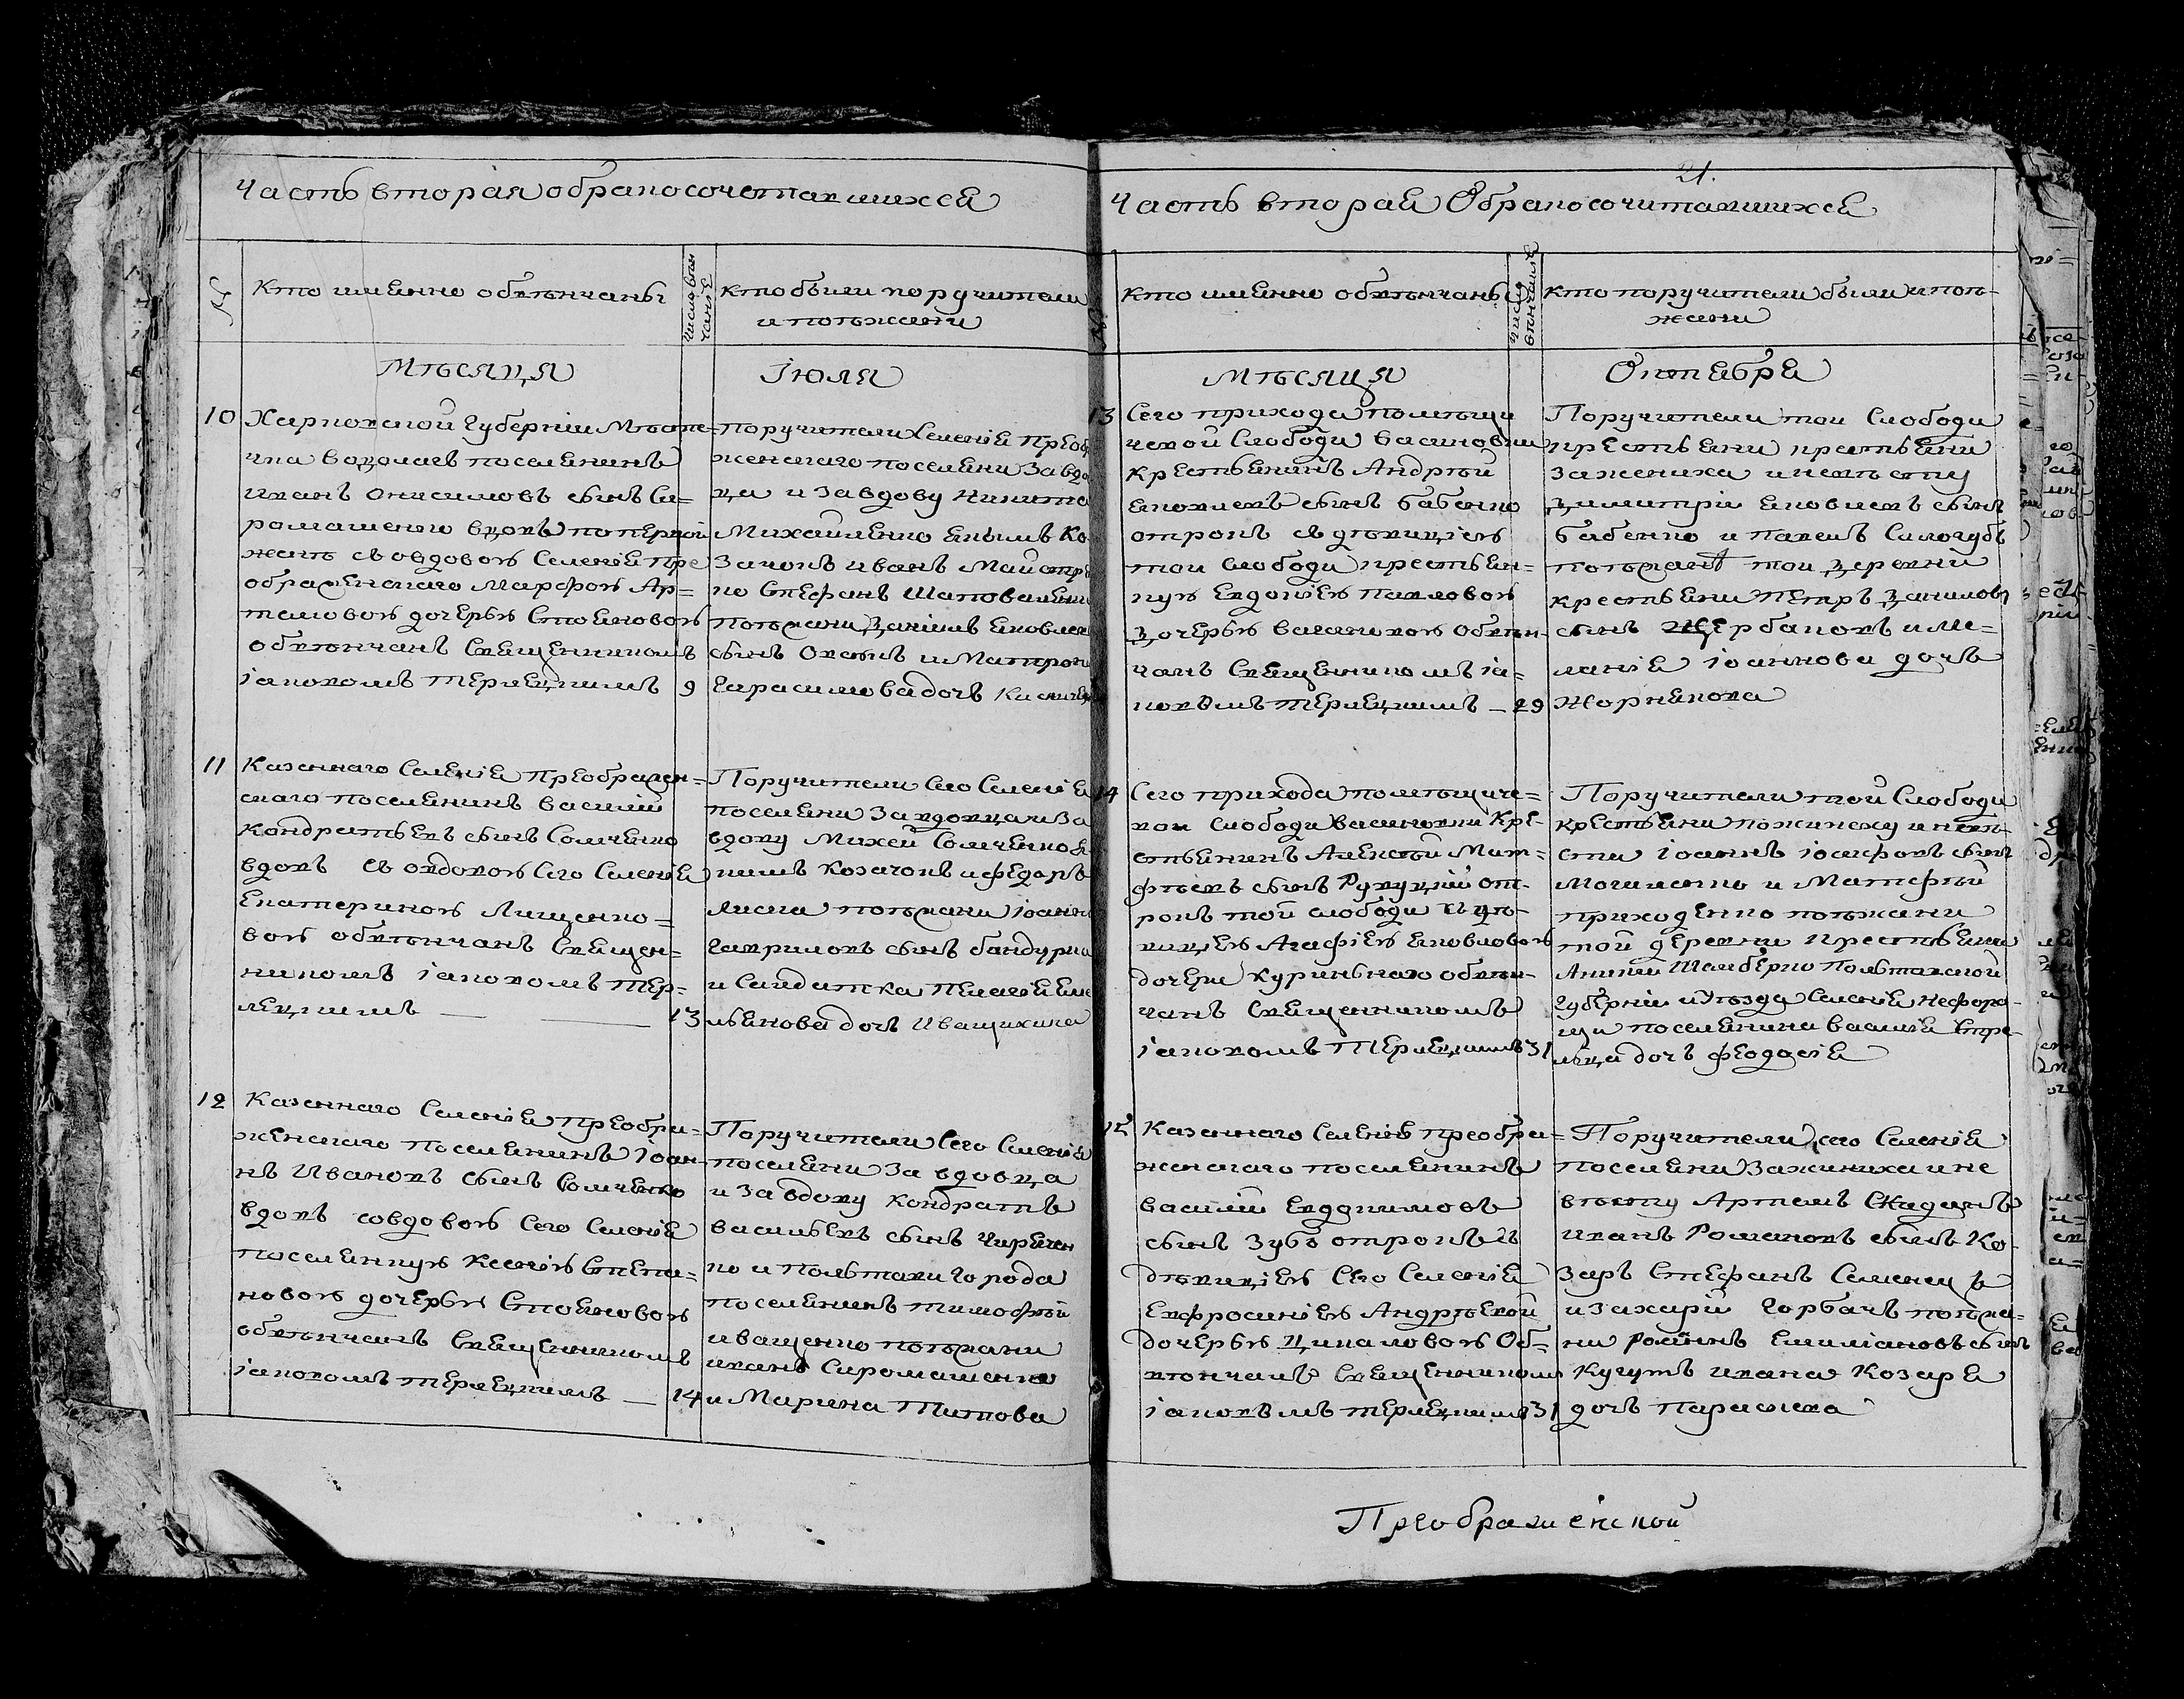 Часть вторая обракосочетавшихся
№
Кто именно обвѣнчаны
число вѣн
чанія
кто были поручители
и поѣзжани
Мѣсяця
Іюля
10
Харковской Губерніи Мѣсте-
чка Водолагъ поселянинъ
Иванъ Онисимовъ сынъ Си-
ромашенко вдовъ по первой
женѣ съ овдовою Селенія Пре
ображенскаго Марфою Ар-
темовою дочерью Стояновою
обвѣнчанъ Священникомъ
Іаковомъ Терлецкимъ 9
поручители Селенія Преоб
женскаго поселяни За вдо
ца и За вдову Никита
Михайленко Якымъ Ко
Зачокъ Иванъ Майстре
ко Стефанъ Шаповаленко
поѣзжани Даніилъ Яковлев
сынъ и Матрона
Гарасимова дочь
11
Казеннаго Селенія Преображен-
скаго поселянинъ Василій
Кондратьевъ сынъ Сомченко
вдовъ съ овдовою Сего Селенія
Екатериною Лищенко-
вою обвѣнчанъ Священ-
никомъ Іаковомъ Тер-
лецкимъ 13
Поручители Сего Селенія
поселяни За вдовца и За
вдову Михей Сомченко Я
кимъ Козачокъ и Федоръ
Лисиа поѣзжани Іоаннъ
Гавриловъ сынъ бандурка
и Салдатка Пелагія Еме
льянова дочь Иващихина
12
Казеннаго Селенія Преобра-
женскаго поселянинъ Іоан
нъ Ивановъ сынъ Сомченко
вдовъ совдовою Сего Селенія
поселянкую Ксеніею Степа-
новою дочерью Стояновою
обвѣнчанъ Священникомъ
Іаковомъ Терлецкимъ — 14
Поручители Сего Селенія
поселяни За вдовца
и За вдову Кондратъ
васильевъ сынъ Чиричен
ко и Полтави города
поселянинъ Тимофей
иващенко поѣзжани
иванъ Сиромашенко
и Марина Титова
21.
Часть вторая Обракосочитавшихся
№
кто именно обвѣнчаны
число
вѣнчанія
кто поручители были и поѣ-
жжани
Мѣсяця
Октября
13
Сего прихода помѣщи
чской Слободи Васиновки
крестьянинъ Андрей
Яковлевъ сынъ бабенко
отрокъ съ дѣвицею
той Слободи крестьян-
кую Евдокіею Павловою
дочерью обвѣн-
чанъ Священникомъ Іа-
ковомъ Терлецкимъ — 29
Поручители той Слободи
крестьяни крестьяни
За жениха и невѣсту
Димитрій Яковлевъ сынъ
бабенко и Павелъ Силогубъ
поѣзжанѣ той деревни
крестьяни Петръ Даниловъ
сынъ Щербаковъ и Ме-
ланія Іоаннова дочь
Жорнякова
14
Сего прихода помѣщиче-
кои Слободи Васиновки Кре-
стьянинъ Алексѣй Мат-
фѣевъ сынъ от-
рокъ той Слободи съ дѣ-
вицею Агафіею Яковловою
дочери Куриньнаго обвѣн-
чанъ Священникомъ
Іаковомъ Терлецкимъ 31
Поручители той Слободи
крестьяни по жениху и невѣ-
сти Іоаннъ Іосифовъ сынъ
и Матфей
Приходенко поѣзжани
той деревни крестьяни
Полтавской
Губерніи и Уѣзда Селенія Нефоро-
щи поселянина Василія Стре-
льца дочь Феодосія
15
Казеннаго Селенія Преобра-
женскаго поселянинъ
Василій Евдокимовъ
сынъ Зубъ отрокъ съ
дѣвицею Сего Селенія
Евфросиніею Андрѣевой
дочерью Цикаловою Об-
вѣнчанъ Священникомъ
Іаковомъ Терлецкимъ 31
Поручители сего Селенія
поселяни За жениха и не
вѣсту Артемъ
иванъ Романовъ сынъ Ко-
заръ Стефанъ Семенецъ
и Захарій Горбачъ поѣзжа-
ни Емиліановъ сынъ
Кучугъ ивана Козаря
дочь Параскева
Преображенской